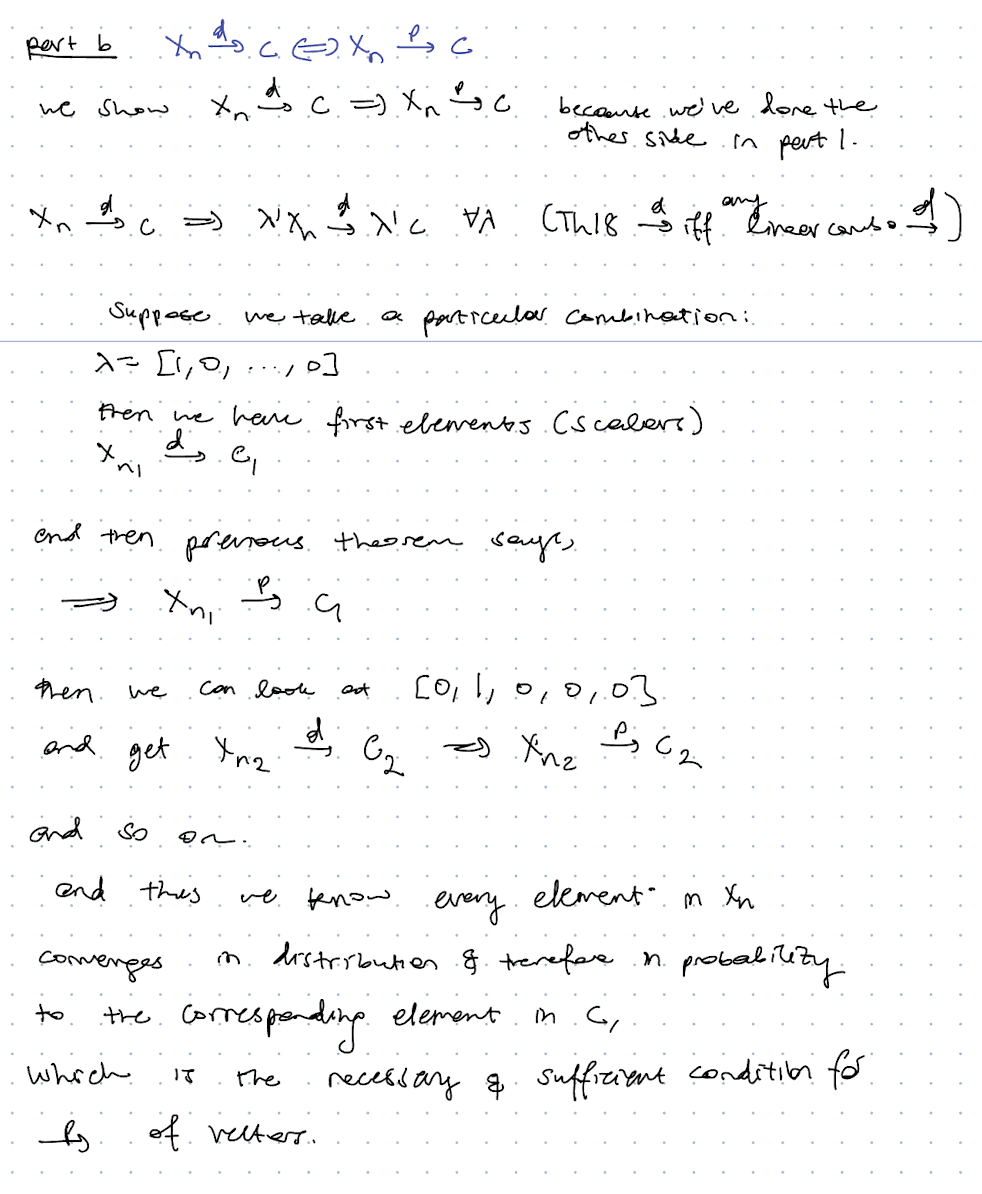 part b X_n →^d c ⟺ X_n →^p c
we show X_n →^d c ⟹ X_n →^p c because we've done the
other side in part 1.
X_n →^d c ⟹ λ'X_n →^d λ'c ∀λ (Th18 →^d iff any linear combo →^d)
Suppose we take a particular combination:
λ = [1, 0, ..., 0]
then we have first elements (scalars)
X_n1 →^d c_1
and then previous theorem says,
⟹ X_n1 →^p c_1
then we can look at [0, 1, 0, 0, 0]
and get X_n2 →^d c_2 ⟹ X_n2 →^p c_2
and so on.
and thus we know every element in X_n
converges in distribution & therefore in probability
to the corresponding element in c,
which is the necessary & sufficient condition for
→^p of vectors.